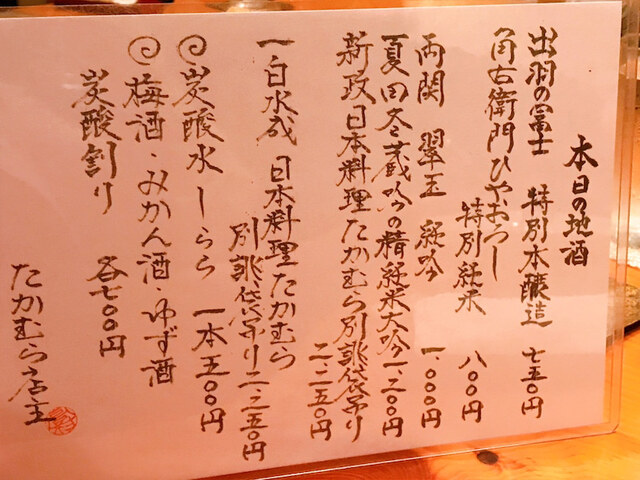 本日の地酒
出羽の冨士 特別本醸造 七五〇円
角右衛門ひやおろし
特別純米 八〇〇円
両関 翠玉 純吟 一、〇〇〇円
夏田冬蔵吟の精純米大吟一、二〇〇円
新政日本料理たかむら別誂袋吊り
二、二五〇円
一白水成 日本料理たかむら
別誂袋吊り二、二五〇円
炭酸水しらら 一本五〇〇円
梅酒・みかん酒・ゆず酒
炭酸割り 各七〇〇円
たかむら店主